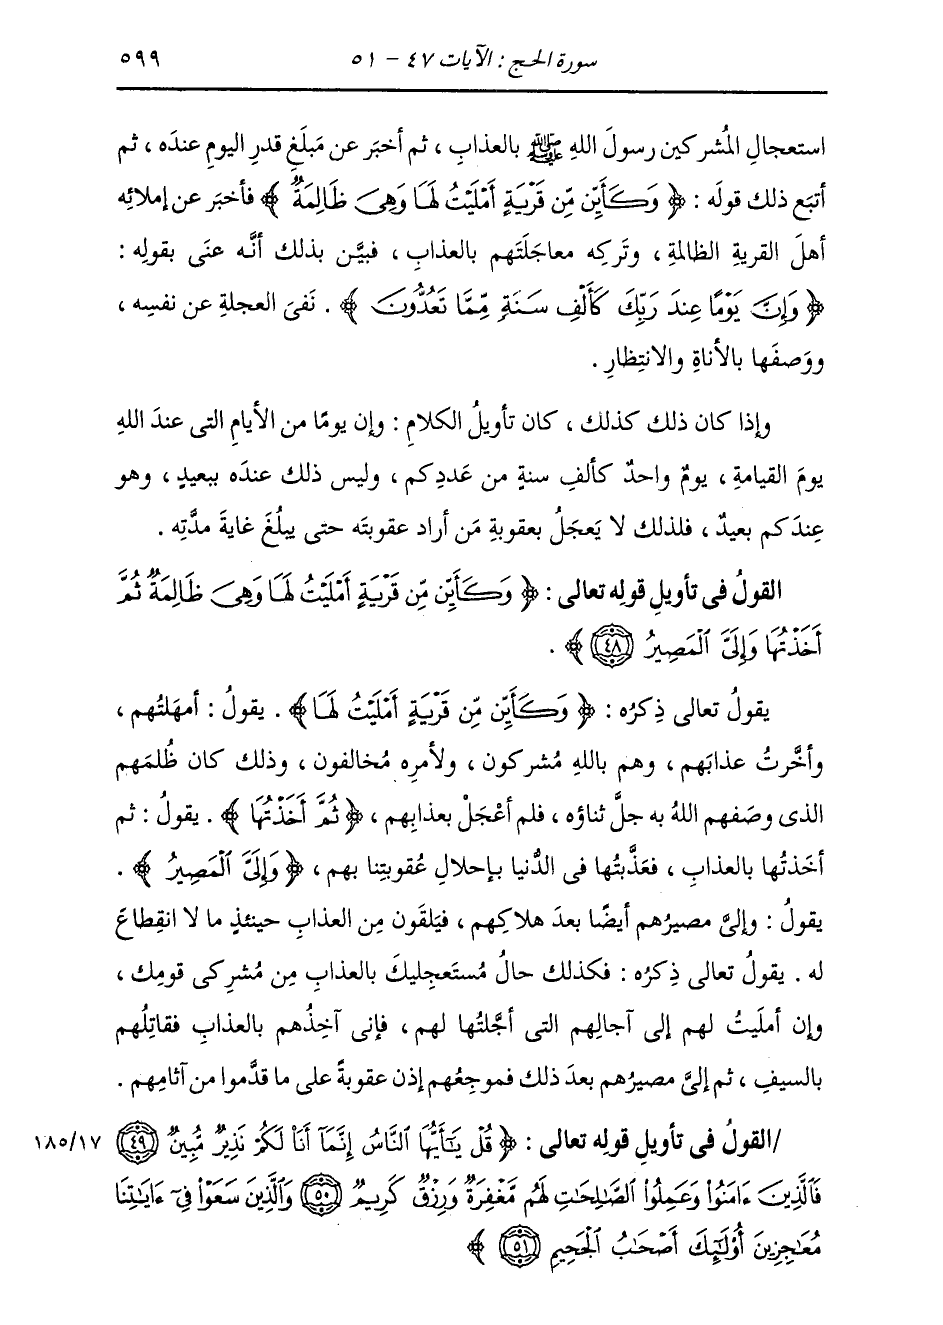 سورة الحج : الآيات ٤٧ - ٥١ ٥٩٩
استعجالِ المُشركين رسولَ اللهِ ﷺ بالعذابِ ، ثم أخبَر عن مَبلَغِ قدرِ اليومِ عندَه ، ثم
أتبَع ذلك قولَه : ﴿ وَكَأَيِّن مِّن قَرْيَةٍ أَمْلَيْتُ لَهَا وَهِيَ ظَالِمَةٌ ﴾ فأخبَر عن إملائِه
أهلَ القريةِ الظالمةِ ، وتَركِه معاجَلَتَهم بالعذابِ ، فبيَّن بذلك أنَّه عنَى بقولِه :
﴿ وَإِنَّ يَوْمًا عِندَ رَبِّكَ كَأَلْفِ سَنَةٍ مِّمَّا تَعُدُّونَ ﴾ . نَفىَ العجلةِ عن نفسِه ،
ووَصفَها بالأناةِ والانتِظارِ .
وإذا كان ذلك كذلك ، كان تأويلُ الكلامِ : وإن يومًا من الأيامِ التى عندَ اللهِ
يومَ القيامةِ ، يومٌ واحدٌ كألفِ سنةٍ من عَددِكم ، وليس ذلك عندَه ببعيدٍ ، وهو
عِندَكم بعيدٌ ، فلذلك لا يَعجَلُ بعقوبةِ مَن أراد عقوبتَه حتى يبلُغَ غايةَ مدَّتِه .
القولُ فى تأويلِ قولِه تعالى : ﴿ وَكَأَيِّن مِّن قَرْيَةٍ أَمْلَيْتُ لَهَا وَهِيَ ظَالِمَةٌ ثُمَّ
أَخَذْتُهَا وَإِلَيَّ الْمَصِيرُ ٤٨ ﴾ .
يقولُ تعالى ذِكرُه : ﴿ وَكَأَيِّن مِّن قَرْيَةٍ أَمْلَيْتُ لَهَا ﴾ . يقولُ : أمهَلتُهم ،
وأخَّرتُ عذابَهم ، وهم باللهِ مُشركون ، ولأمرِه مُخالفون ، وذلك كان ظُلمَهم
الذى وصَفهم اللهُ به جلَّ ثناؤه ، فلم أعْجَلْ بعذابِهم ، ﴿ ثُمَّ أَخَذْتُهَا ﴾ . يقولُ : ثم
أخَذتُها بالعذابِ ، فعَذَّبتُها فى الدُّنيا بإحلالِ عُقوبتِنا بهم ، ﴿ وَإِلَيَّ الْمَصِيرُ ﴾ .
يقولُ : وإلىَّ مصيرُهم أيضًا بعدَ هلاكِهم ، فيَلقَون مِن العذابِ حينئذٍ ما لا انقِطاعَ
له . يقولُ تعالى ذِكرُه : فكذلك حالُ مُستَعجِليكَ بالعذابِ مِن مُشركى قومِك ،
وإن أملَيتُ لهم إلى آجالِهم التى أجَّلتُها لهم ، فإنى آخِذُهم بالعذابِ فقاتِلُهم
بالسيفِ ، ثم إلىَّ مصيرُهم بعدَ ذلك فموجِعُهم إذن عقوبةً على ما قدَّموا من آثامِهم .
/القولُ فى تأويلِ قولِه تعالى : ﴿ قُلْ يَٰأَيُّهَا النَّاسُ إِنَّمَا أَنَا لَكُمْ نَذِيرٌ مُّبِينٌ ٤٩ ١٨٥/١٧
فَالَّذِينَ ءَامَنُوا وَعَمِلُوا الصَّٰلِحَٰتِ لَهُم مَّغْفِرَةٌ وَرِزْقٌ كَرِيمٌ ٥٠ وَالَّذِينَ سَعَوْا فِي ءَايَٰتِنَا
مُعَٰجِزِينَ أُوْلَٰئِكَ أَصْحَٰبُ الْجَحِيمِ ٥١ ﴾